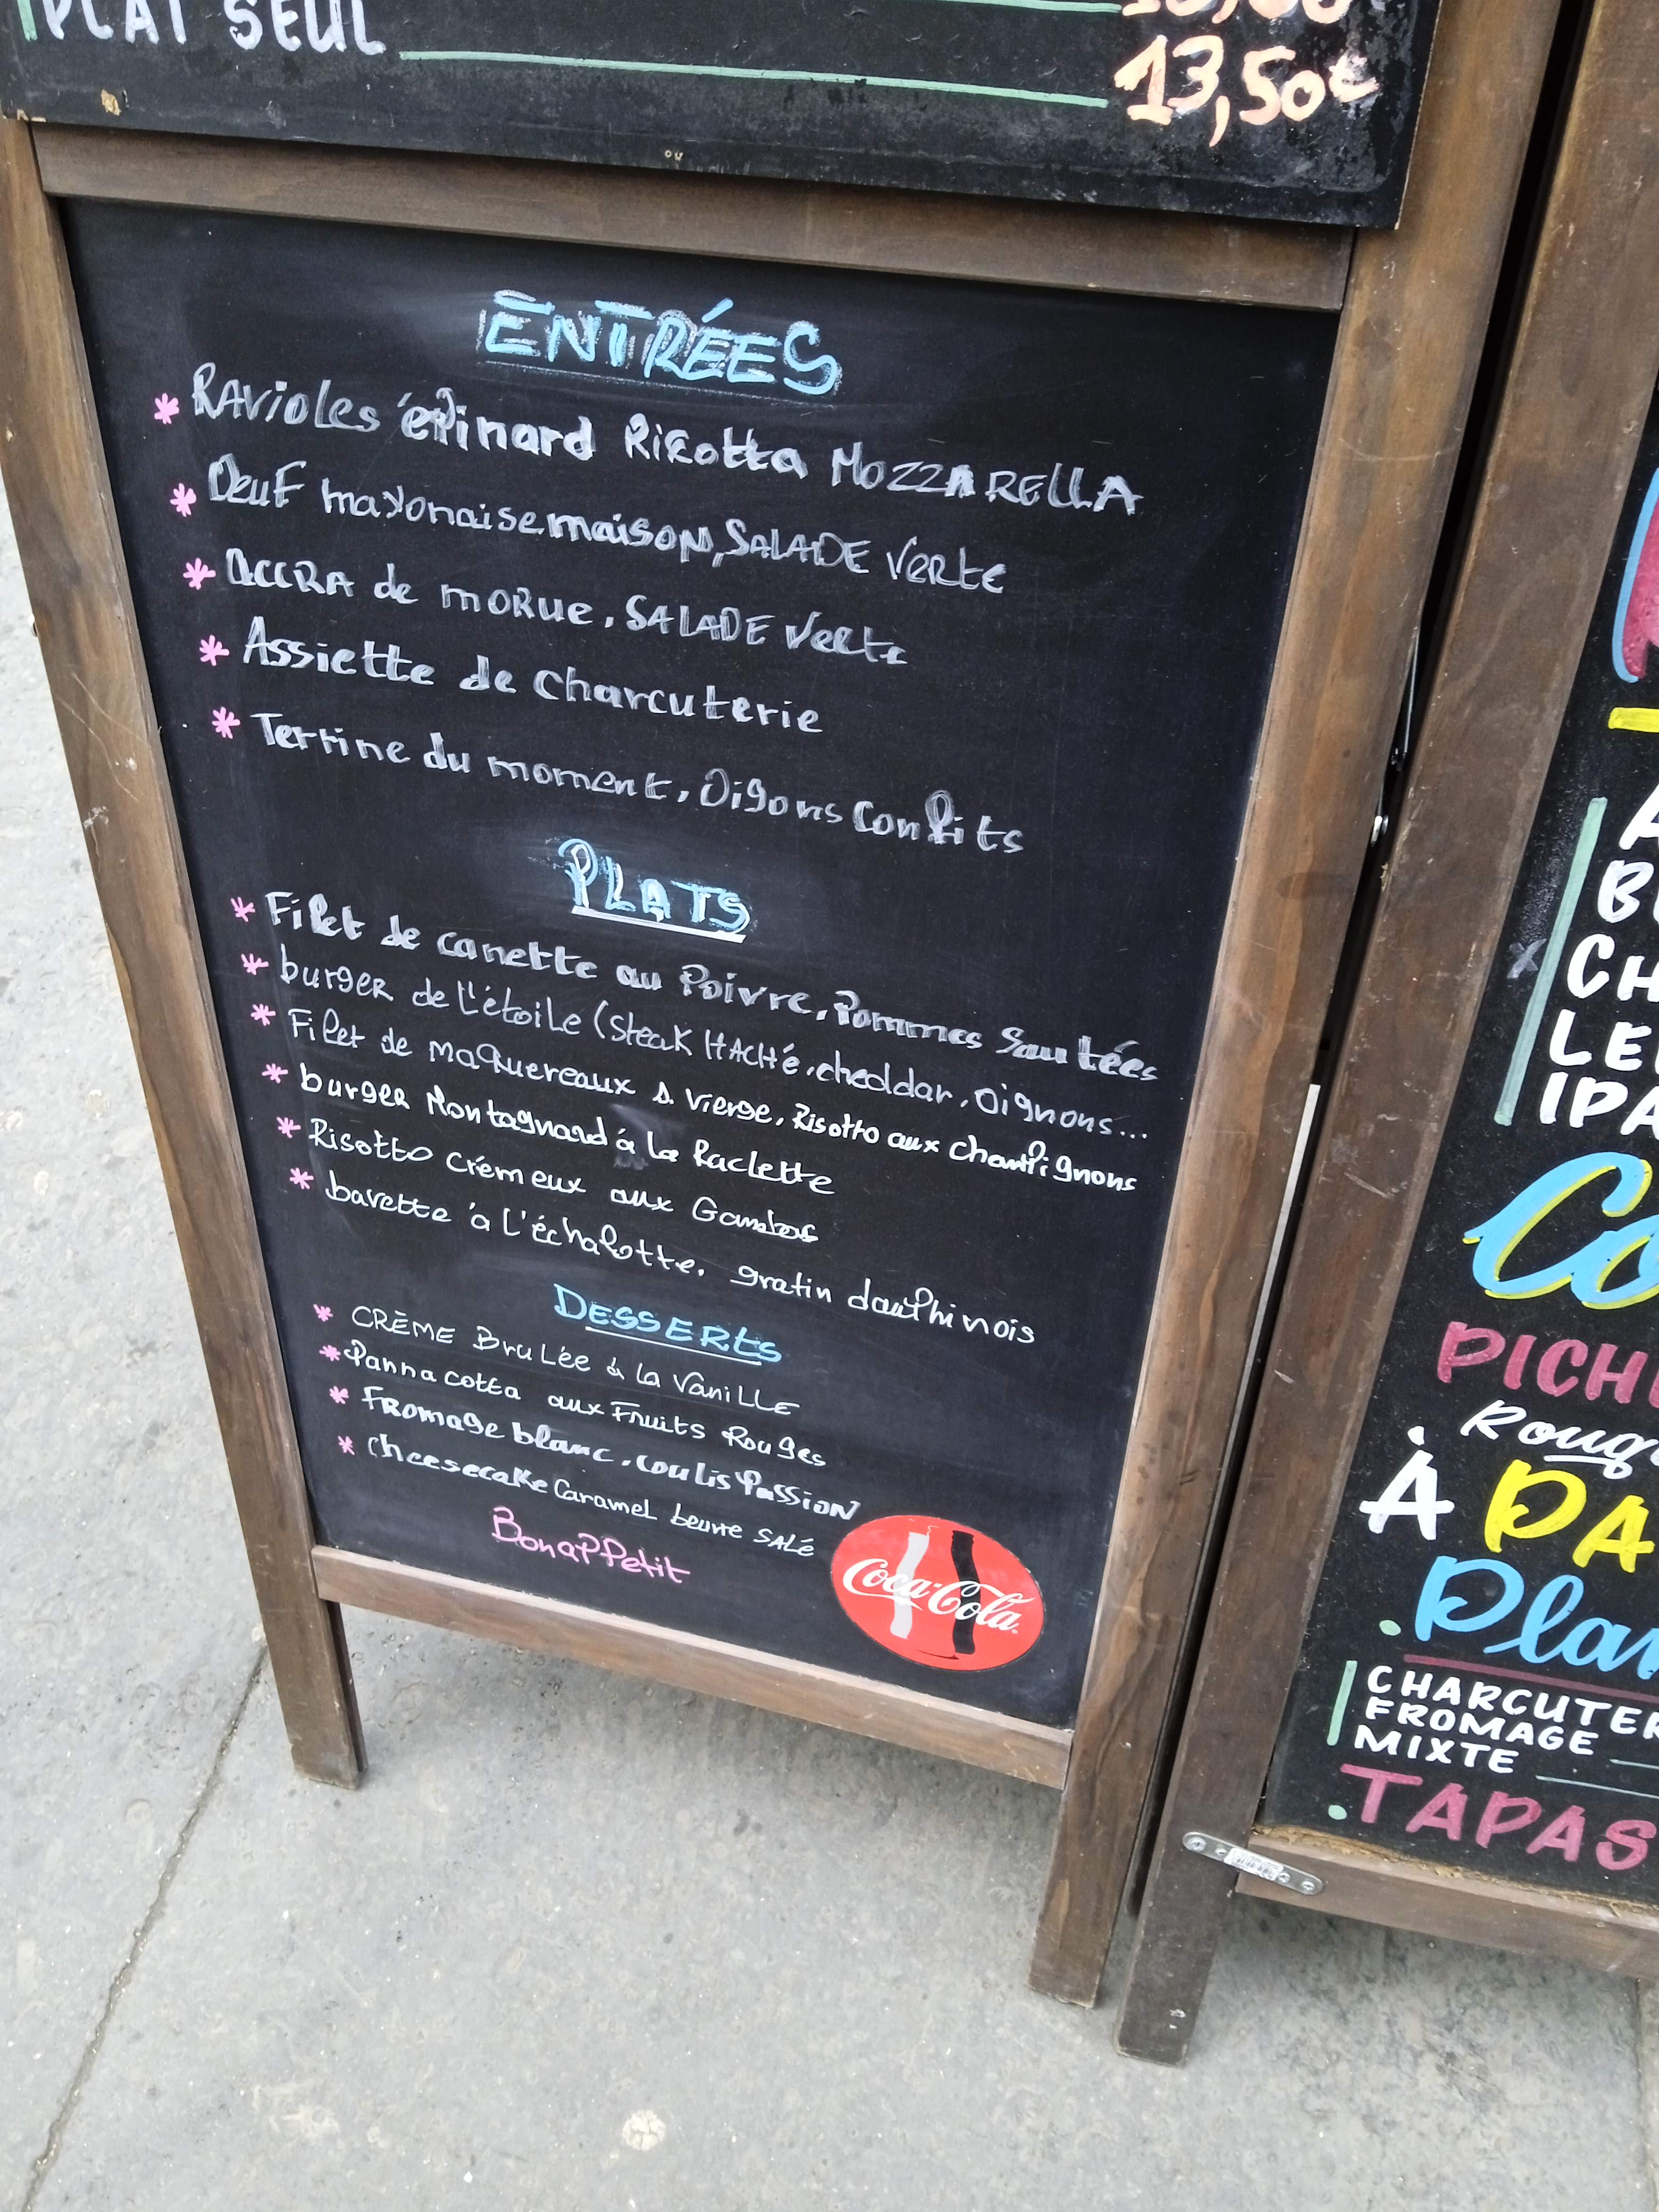 PLAT SEUL 13,50€
ou
ENTRÉES
* RAVioLes épinard Ricotta MOZZARELLA
* OeuF mayonaise maison, SALADE Verte
* ACCRA de moRue, SALADE Verte
* Assiette de charcuterie
* Terrine du moment, Oigons Confits
PLATS
* Filet de canette au Poivre, Pommes Sautées
* burger de L'étoile (Steak HACHé, cheddar, oignons...
* Filet de maquereaux s. vierge, Risotto aux champignons
* burger Montagnard à la Raclette
* Risotto crémeux aux Gambas
* bavette à l'échalotte, gratin dauphinois
DESSERTS
* CRÈME BruLée à La VaniLLe
* Panna cotta aux Fruits Rouges
* Fromage blanc, coulis Passion
* cheesecake Caramel beurre SALé
Bon apPetit
Coca-Cola
CH
LE
IPA
Co
PICH
Roug
À PA
Plan
CHARCUTER
FROMAGE
MIXTE
TAPAS